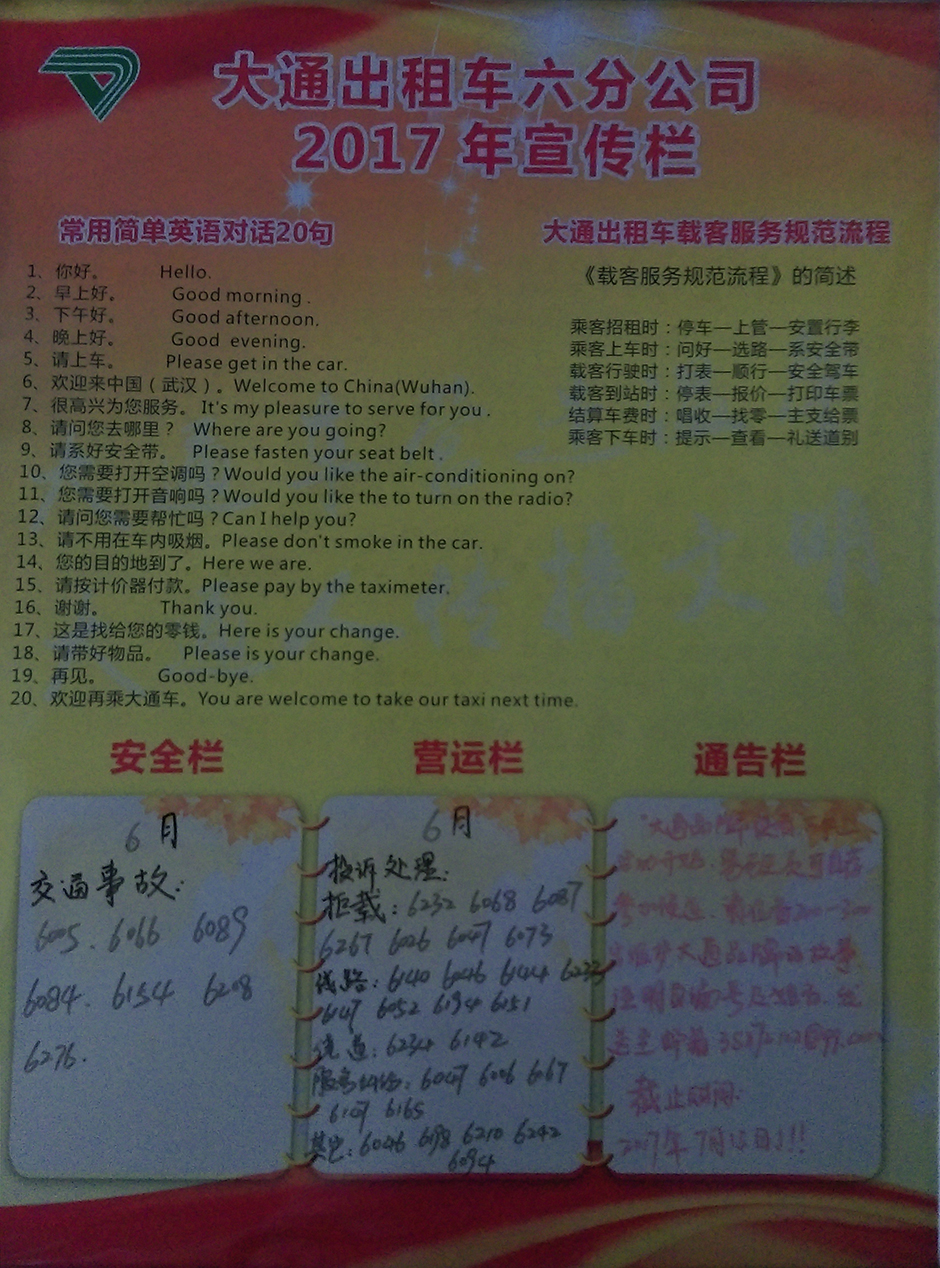 大通出租车六分公司
2017年宣传栏
常用简单英语对话20句
1、你好。 Hello.
2、早上好。 Good morning .
3、下午好。 Good afternoon.
4、晚上好。 Good evening.
5、请上车。 Please get in the car.
6、欢迎来中国（武汉）。Welcome to China(Wuhan).
7、很高兴为您服务。It's my pleasure to serve for you .
8、请问您去哪里？ Where are you going?
9、请系好安全带。 Please fasten your seat belt .
10、您需要打开空调吗？Would you like the air-conditioning on?
11、您需要打开音响吗？Would you like the to turn on the radio?
12、请问您需要帮忙吗？Can I help you?
13、请不用在车内吸烟。Please don't smoke in the car.
14、您的目的地到了。Here we are.
15、请按计价器付款。Please pay by the taximeter.
16、谢谢。 Thank you.
17、这是找给您的零钱。Here is your change.
18、请带好物品。 Please is your change.
19、再见。 Good-bye.
20、欢迎再乘大通车。You are welcome to take our taxi next time.
大通出租车载客服务规范流程
《载客服务规范流程》的简述
乘客招租时：停车—上管—安置行李
乘客上车时：问好—选路—系安全带
载客行驶时：打表—顺行—安全驾车
载客到站时：停表—报价—打印车票
结算车费时：唱收—找零—主支给票
乘客下车时：提示—查看—礼送道别
安全栏
6月
交通事故：
6005. 6066 6089
6084. 6154 6208
6276.
营运栏
6月
投诉处理：
拒载：6232 6068 6087
6267 6026 6047 6073
线路：6140 6046 6144 6233
6147 6052 6194 6151
绕道：6234 6142
6047 6006 6067
6107 6165
其它：6046 6198 6210 6242
6094
通告栏
大通品牌故事
200-300
大通品牌的故事
注明自编号及姓名
送至邮箱
截止时间：
2017年7月15日!!!